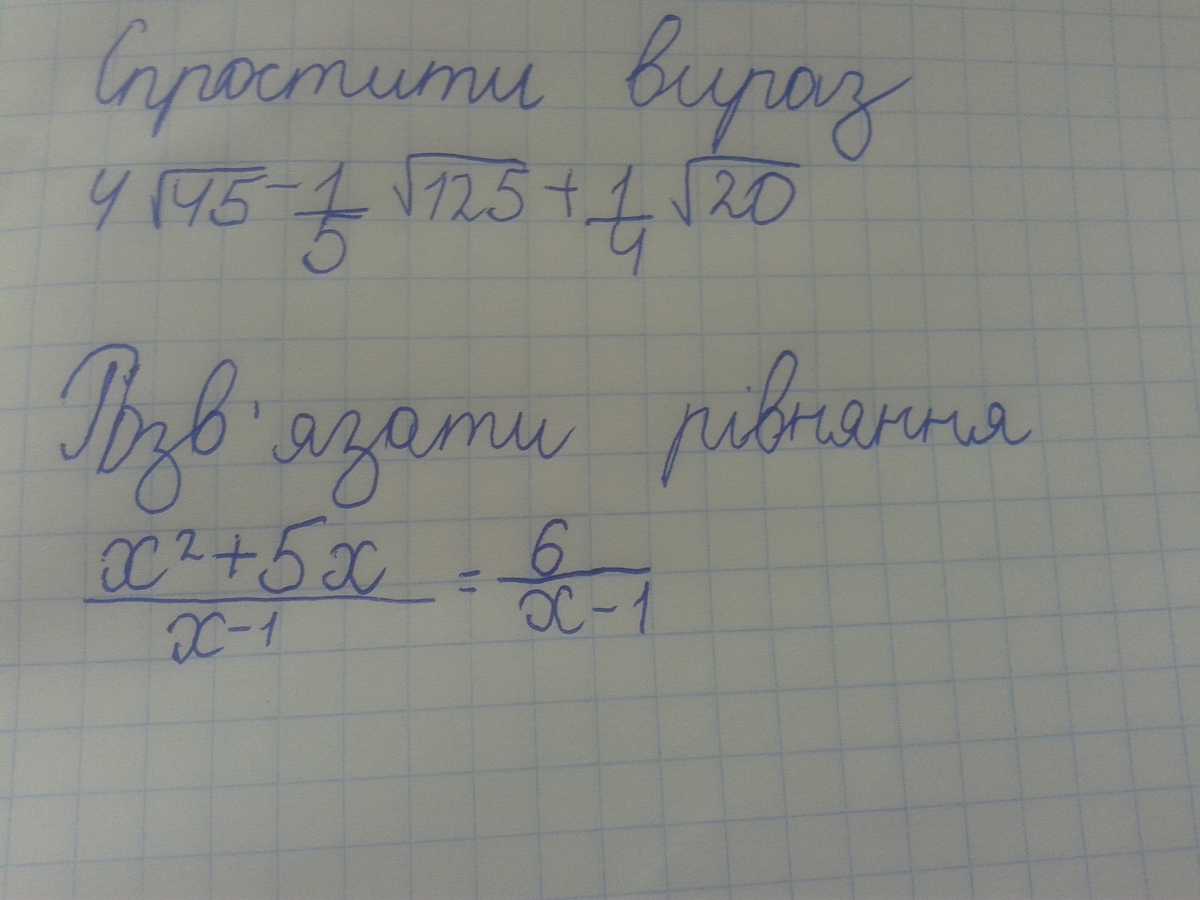 Спростити вираз
4√45 - 1/5 √125 + 1/4 √20
Розв'язати рівняння
x²+5x / x-1 = 6 / x-1